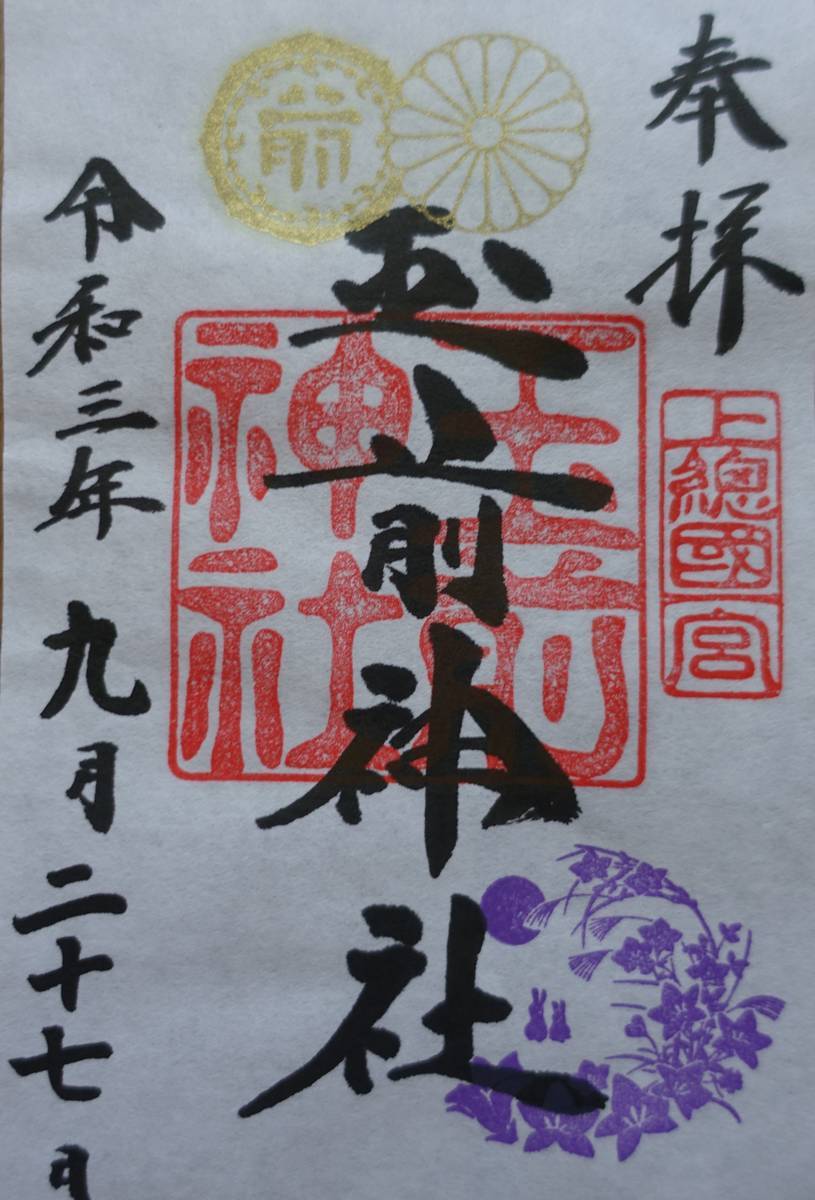 奉拝
上總國一宮
前
玉前神社
玉前神社
令和三年九月二十七日